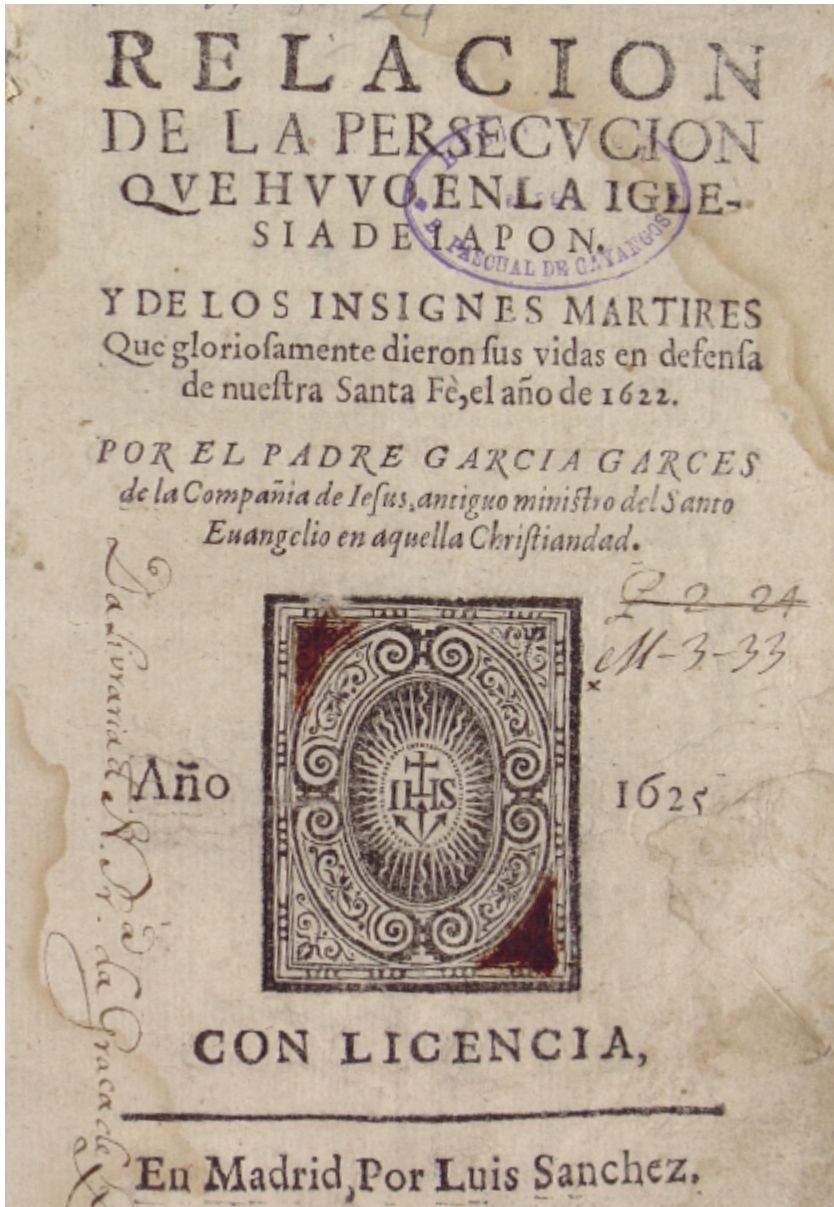 24
RELACION
DE LA PERSECVCION
QVE HVVO EN LA IGLE-
SIA DE IAPON.
P. PASCUAL DE GAYANGOS
Y DE LOS INSIGNES MARTIRES
Que glorioſamente dieron ſus vidas en defenſa
de nueſtra Santa Fè, el año de 1622.
POR EL PADRE GARCIA GARCES
de la Compañia de Ieſus, antiguo miniſtro del Santo
Euangelio en aquella Chriſtiandad.
P-2-24
M-3-33
x
Año
IHS
1625
Da Livraria de N. Sr.ª da Graca de
CON LICENCIA,
En Madrid, Por Luis Sanchez.